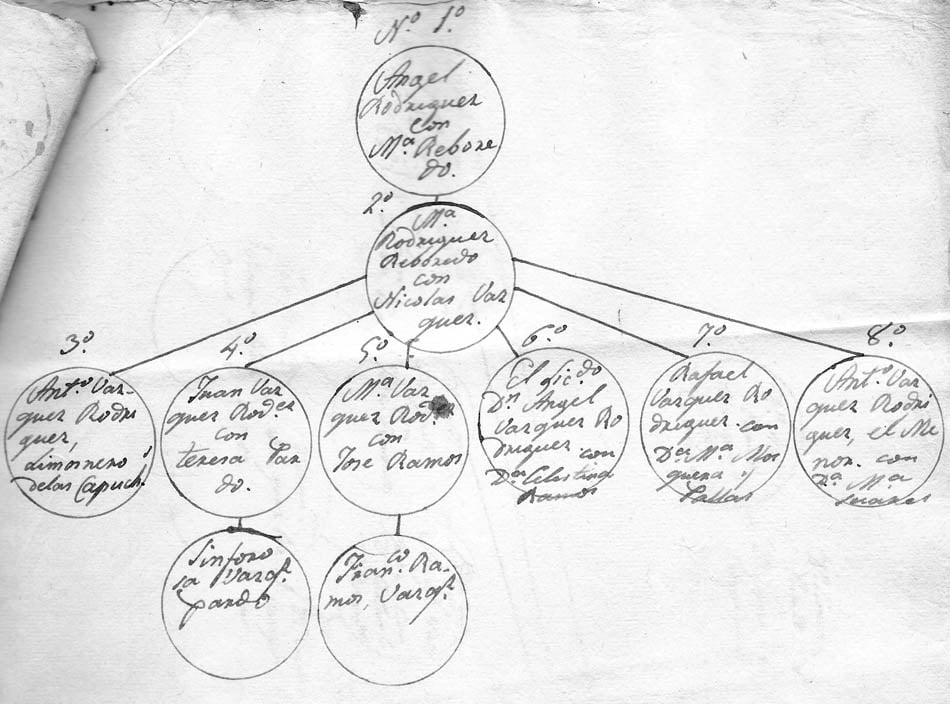 Nº 1º
Angel
Rodriguez
con
Mª Rebore
do.
2º
Mª
Rodriguez
Reboredo
con
Nicolas Vaz
quez.
3º
Antº Vaz-
quez Rodri
guez,
Limosnero
de las Capuch.
4º
Juan Vaz
quez Rodez
con
teresa Par
do.
5º
Mª Vaz
quez Rodz
con
Jose Ramos
6º
El Licdo
Dn Angel
Vazquez Ro
driguez con
Dª Celestina
Ramos
7º
Rafael
Vazquez Ro
driguez con
Dª Mª Mos
quera y
Pallas
8º
Antº Vaz
quez Rodri
guez, el Me
nor con
Dª Mª
Suarez
Sinforo
sa Vazqz
pardo
Franco Ra-
mos, Vazqz